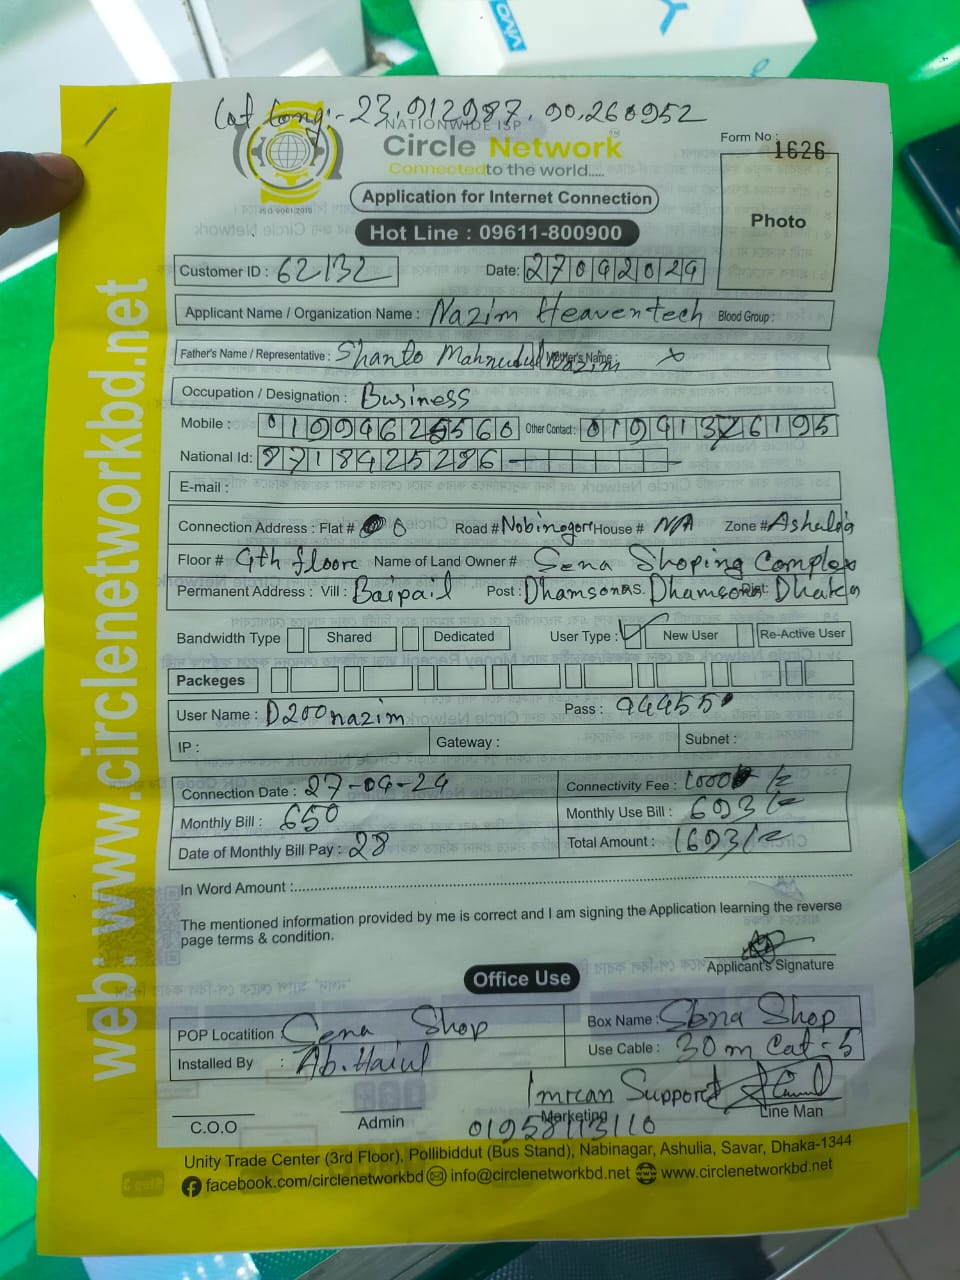 Lat Long:- 23.912987. 90.260952
NATIONWIDE ISP
Circle Network
Connected to the world.....
ISO 9001:2015
Form No : 1626
Application for Internet Connection
Photo
Hot Line : 09611-800900
Customer ID : 62132 Date: 27092024
Applicant Name / Organization Name : Nazim Heaventech Blood Group :
Father's Name / Representative : Shanto Mahmudul Nazim Mother's Name : x
Occupation / Designation : Business
Mobile : Other Contact :
National Id: 8718425286
E-mail :
Connection Address : Flat # 0 Road # Nobinogor House # N/A Zone # Ashulia
Floor # 4th floore Name of Land Owner # Sena Shoping Complex
Permanent Address : Vill : Baipail Post : Dhamsona P.S. Dhamsona Dist: Dhaka
Bandwidth Type Shared Dedicated User Type : New User Re-Active User
Packeges
User Name : D200nazim Pass : 94455
IP : Gateway : Subnet :
Connection Date : 27-09-24 Connectivity Fee : 1000 /=
Monthly Bill : 650 Monthly Use Bill : 693/=
Date of Monthly Bill Pay : 28 Total Amount : 1693/=
In Word Amount :
The mentioned information provided by me is correct and I am signing the Application learning the reverse
page terms & condition.
Applicant's Signature
Office Use
POP Locatition Cena Shop Box Name : Sena Shop
Installed By : Use Cable : 30m Cat-5
Imran Support
C.O.O Admin Marketing Line Man
01958113110
Unity Trade Center (3rd Floor), Pollibiddut (Bus Stand), Nabinagar, Ashulia, Savar, Dhaka-1344
facebook.com/circlenetworkbd info@circlenetworkbd.net www.circlenetworkbd.net
web: www.circlenetworkbd.net
vivo